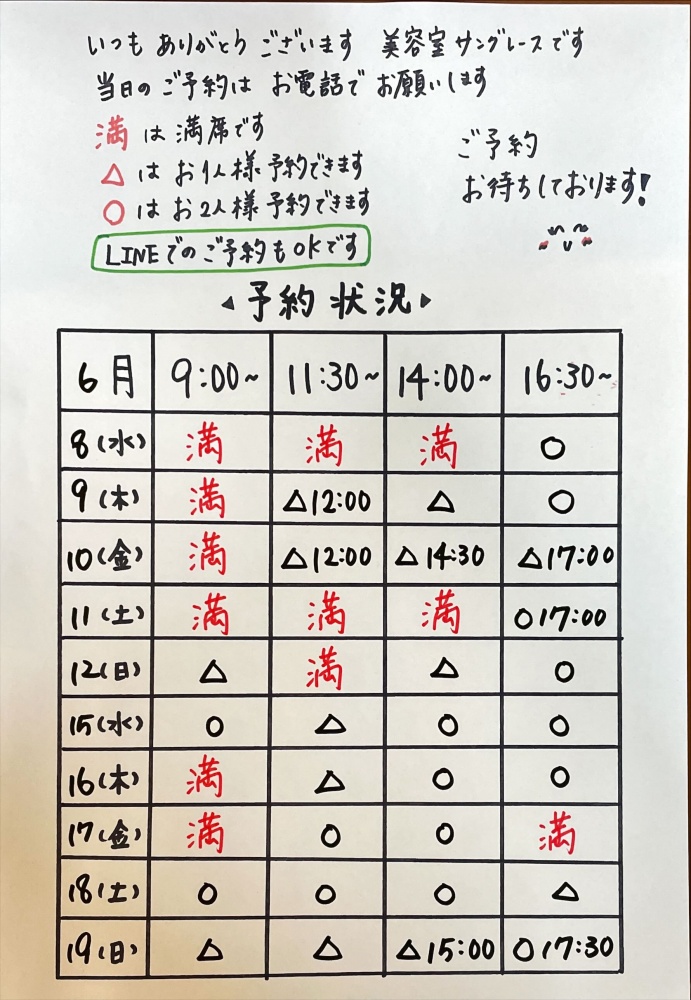 いつも ありがとう ございます 美容室 サングレースです
当日の ご予約は お電話で お願いします
満 は 満席です
△ は お1人様 予約できます
○ は お2人様 予約できます
LINEでの ご予約も OKです
ご予約
お待ちしております!
◀ 予約 状況 ▶
6月 9:00~ 11:30~ 14:00~ 16:30~
8(水) 満 満 満 ○
9(木) 満 △12:00 △ ○
10(金) 満 △12:00 △14:30 △17:00
11(土) 満 満 満 ○17:00
12(日) △ 満 △ ○
15(水) ○ △ ○ ○
16(木) 満 △ ○ ○
17(金) 満 ○ ○ 満
18(土) ○ ○ ○ △
19(日) △ △ △15:00 ○17:30